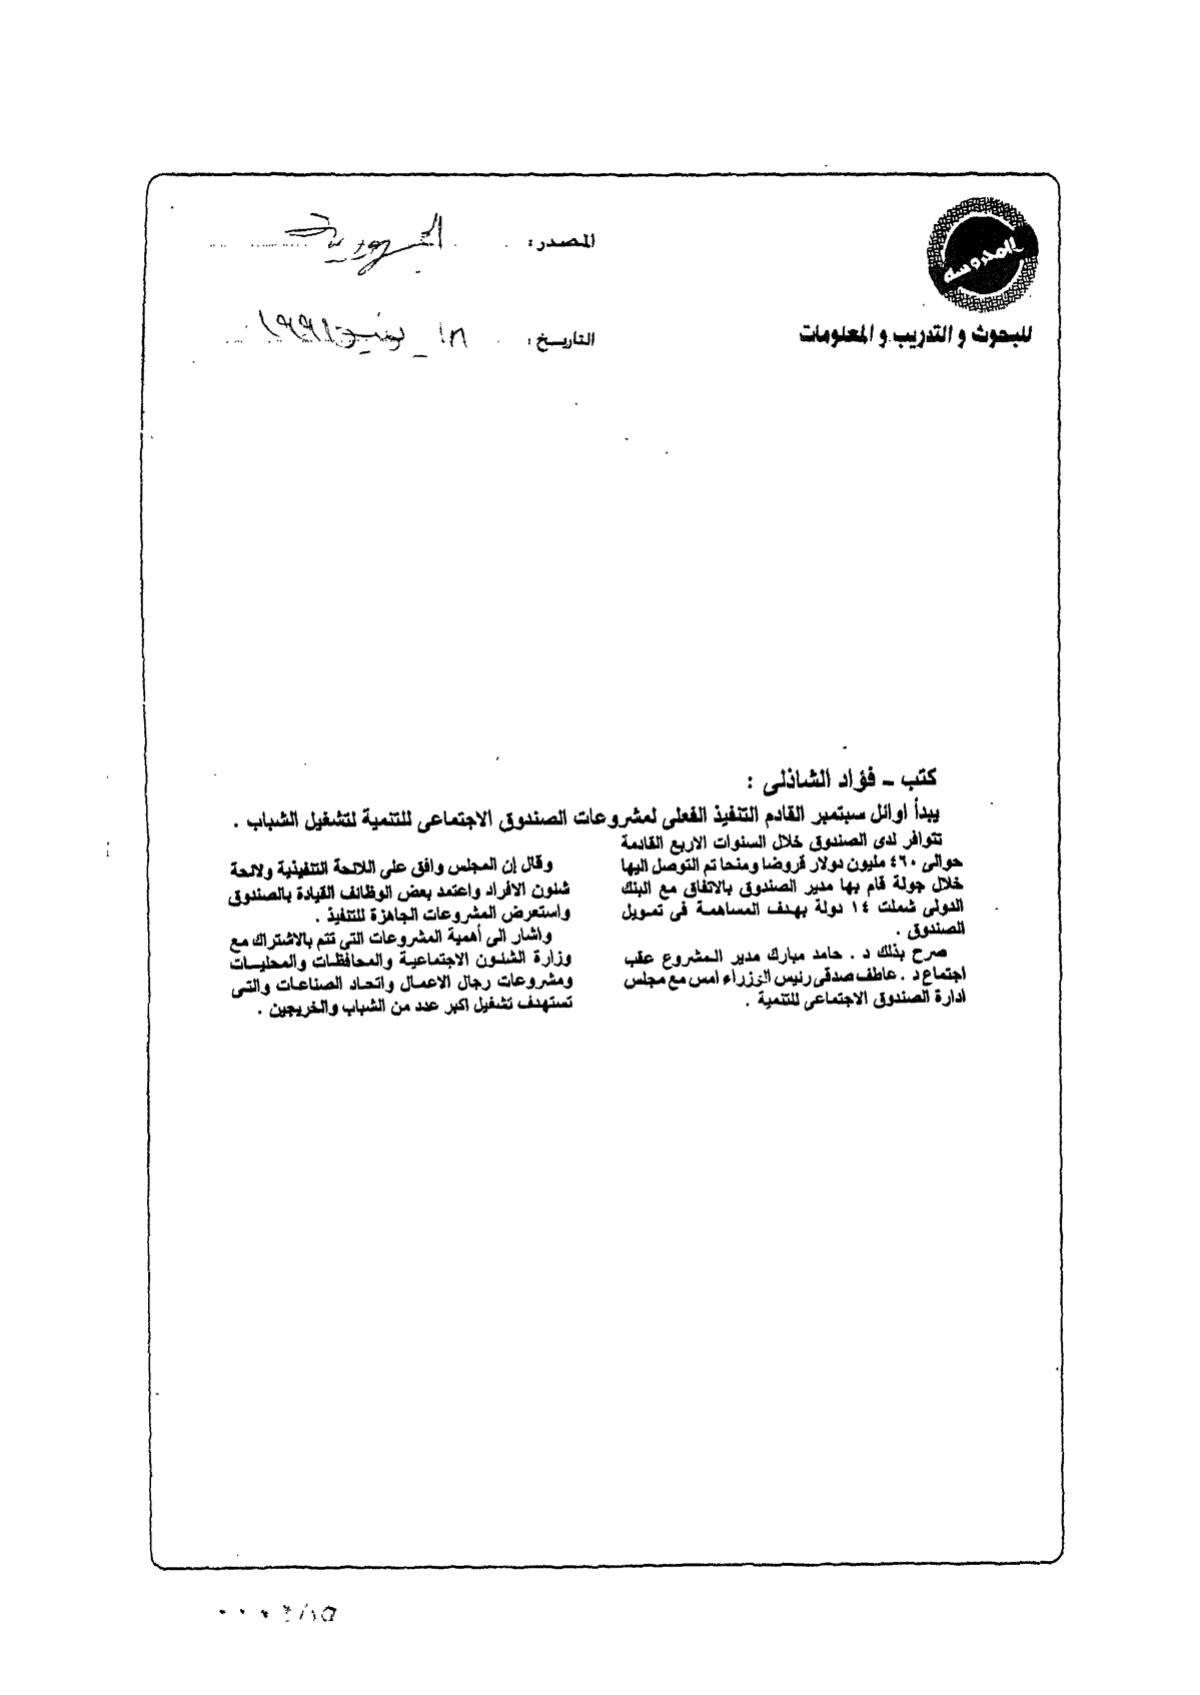 المحروسة
للبحوث و التدريب و المعلومات
المصدر : الجمهورية
التاريخ : ١٨ يونيو ١٩٩١
كتب ـ فؤاد الشاذلى :
يبدأ اوائل سبتمبر القادم التنفيذ الفعلى لمشروعات الصندوق الاجتماعى للتنمية لتشغيل الشباب .
تتوافر لدى الصندوق خلال السنوات الاربع القادمة
حوالى ٤٦٠ مليون دولار قروضا ومنحا تم التوصل اليها
خلال جولة قام بها مدير الصندوق بالاتفاق مع البنك
الدولى شملت ١٤ دولة بهدف المساهمة فى تمويل
الصندوق .
صرح بذلك د . حامد مبارك مدير المشروع عقب
اجتماع د . عاطف صدقى رئيس الوزراء امس مع مجلس
ادارة الصندوق الاجتماعى للتنمية .
وقال إن المجلس وافق على اللائحة التنفيذية ولائحة
شئون الافراد واعتمد بعض الوظائف القيادة بالصندوق
واستعرض المشروعات الجاهزة للتنفيذ .
واشار الى أهمية المشروعات التى تتم بالاشتراك مع
وزارة الشئون الاجتماعية والمحافظات والمحليات
ومشروعات رجال الاعمال واتحاد الصناعات والتى
تستهدف تشغيل اكبر عدد من الشباب والخريجين .